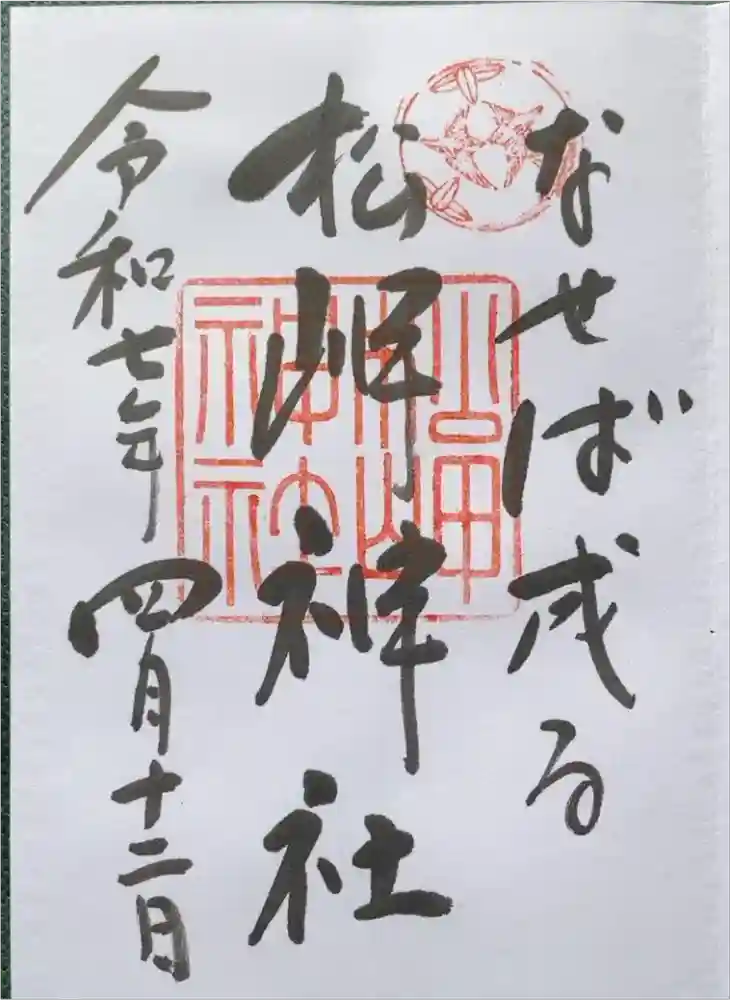 なせば成る
松岬神社
令和七年四月十二日
松岬
神社